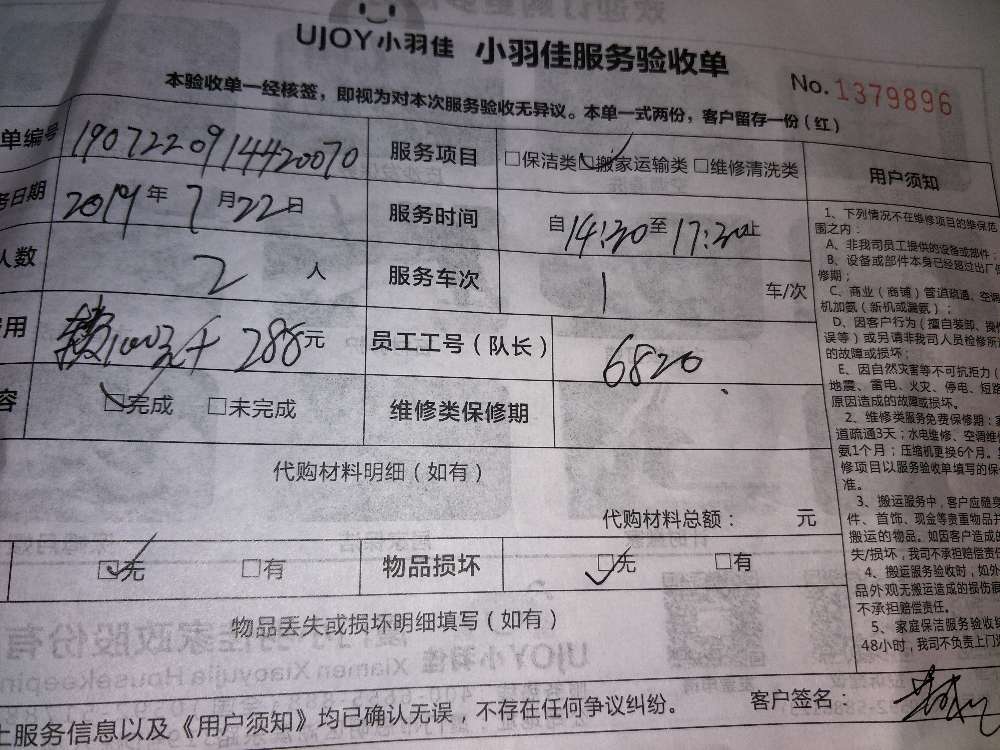 UJOY小羽佳 小羽佳服务验收单
No. 1379896
本验收单一经核签，即视为对本次服务验收无异议。本单一式两份，客户留存一份（红）
单编号 190722091442 0070 服务项目 □保洁类 ☑搬家运输类 □维修清洗类 用户须知
务日期 2019年7月22日 服务时间 自14:30至17:30止
人数 2人 服务车次 1 车/次
费用 100元+288元 员工工号（队长） 6820
容 ☑完成 □未完成 维修类保修期
代购材料明细（如有）
代购材料总额： 元
☑无 □有 物品损坏 ☑无 □有
物品丢失或损坏明细填写（如有）
上服务信息以及《用户须知》均已确认无误，不存在任何争议纠纷。 客户签名：
1、下列情况不在维修项目的维保范
围之内：
A、非我司员工提供的设备或部件；
B、设备或部件本身已经超过出厂保
修期；
C、商业（商铺）管道疏通、空调
机加氨（新机或漏氨）；
D、因客户行为（擅自装卸、操作
误等）或另请非我司人员检修所
的故障或损坏；
E、因自然灾害等不可抗拒力（
地震、雷电、火灾、停电、短路
原因造成的故障或损坏。
2、维修类服务免费保修期：
道疏通3天；水电维修、空调维
氨1个月；压缩机更换6个月。
修项目以服务验收单填写的保
准。
3、搬运服务中，客户应随身
件、首饰、现金等贵重物品
搬运的物品。如因客户造成的
失/损坏，我司不承担赔偿责
4、搬运服务验收时，如外
品外观无搬运造成的损伤痕
不承担赔偿责任。
5、家庭保洁服务验收
48小时，我司不负责上门